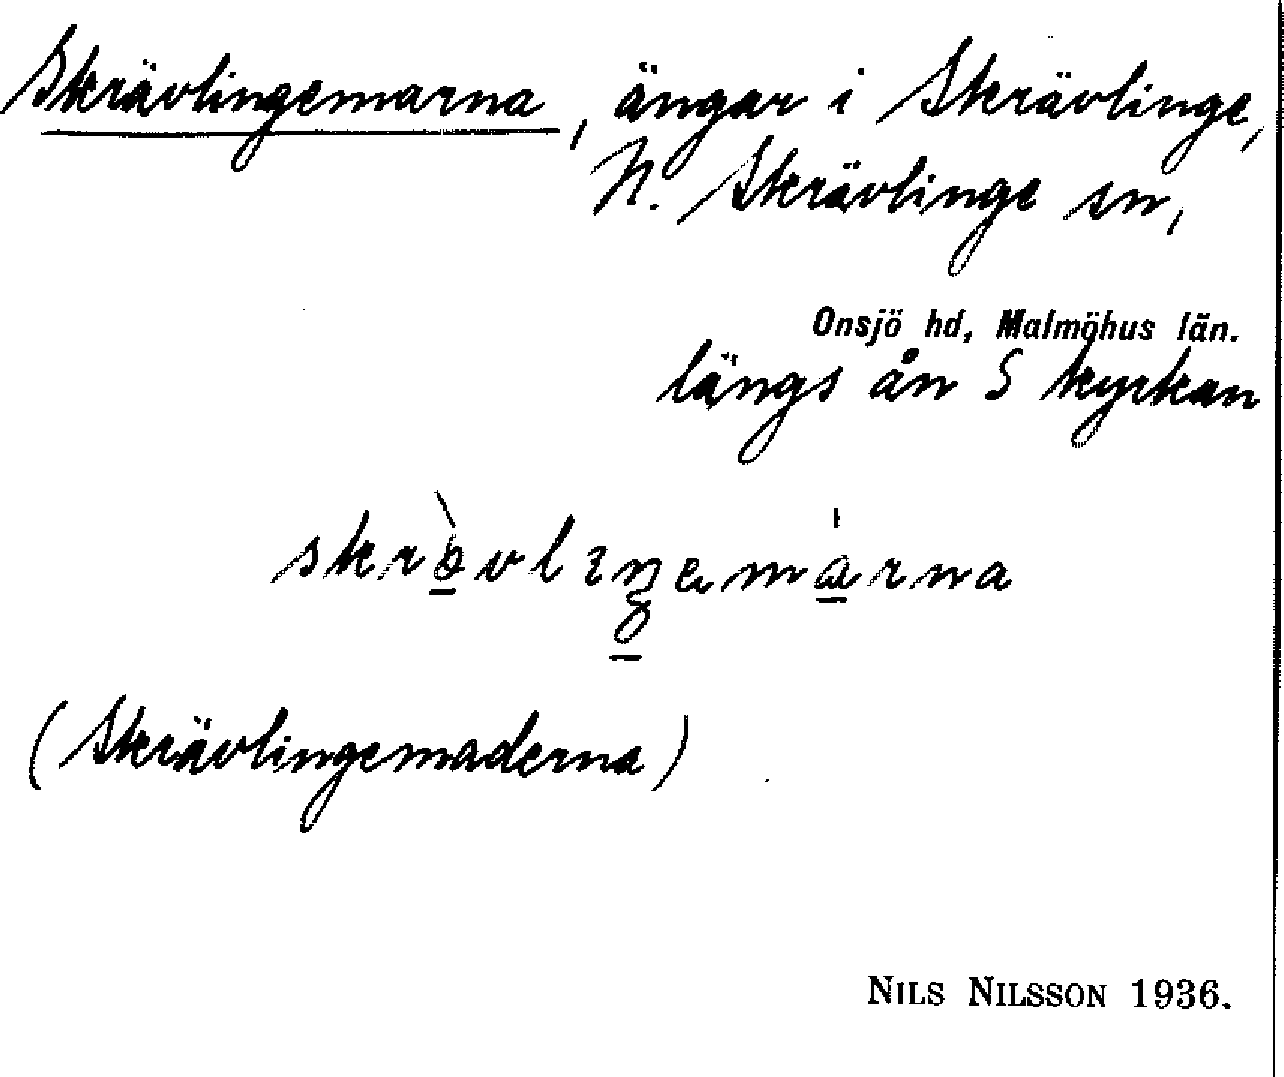 Skrävlingemarna, ängar i Skrävlinge,
N. Skrävlinge sn,
Onsjö hd, Malmöhus län.
längs ån S kyrkan
(Skrävlingemaderna)
NILS NILSSON 1936.